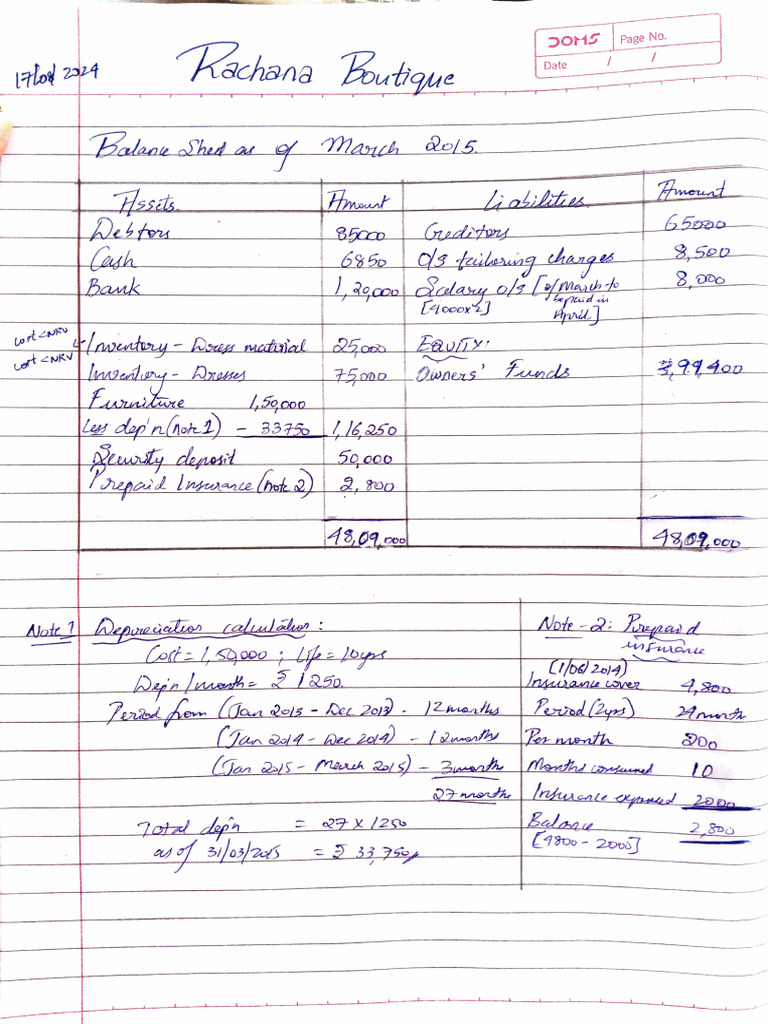 DOMS Page No.
Date / /
17/08/2024 Rachana Boutique
Balance Sheet as of March 2015.
Assets. Amount Liabilities. Amount
Debtors 85000 Creditors 65000
Cash 6850 O/s tailoring charges 8,500
Bank 1,20,000 Salary o/s [of March to be paid in April] 8,000
[4000x2]
cost<NRV Inventory - Dress material 25,000 EQUITY:
cost<NRV Inventory - Dresses 75,000 Owners' Funds 3,99,400
Furniture 1,50,000
Less dep'n (note 1) - 33750 1,16,250
Security deposit 50,000
Prepaid Insurance (note 2) 2,800
48,09,000 48,09,000
Note 1 Depreciation calculation:
Cost = 1,50,000 ; Life = 10yrs
Dep'n/month = ₹ 1250.
Period from (Jan 2013 - Dec 2013) - 12 months
(Jan 2014 - Dec 2014) - 12 months
(Jan 2015 - March 2015) - 3 months
27 months
Total dep'n = 27 x 1250
as of 31/03/2015 = ₹ 33,750/-
Note - 2: Prepaid insurance
(1/06/2014)
Insurance cover 4,800
Period (2yrs) 24 month
Per month 200
Months consumed 10
Insurance expensed 2000
Balance 2,800
[4800 - 2000]